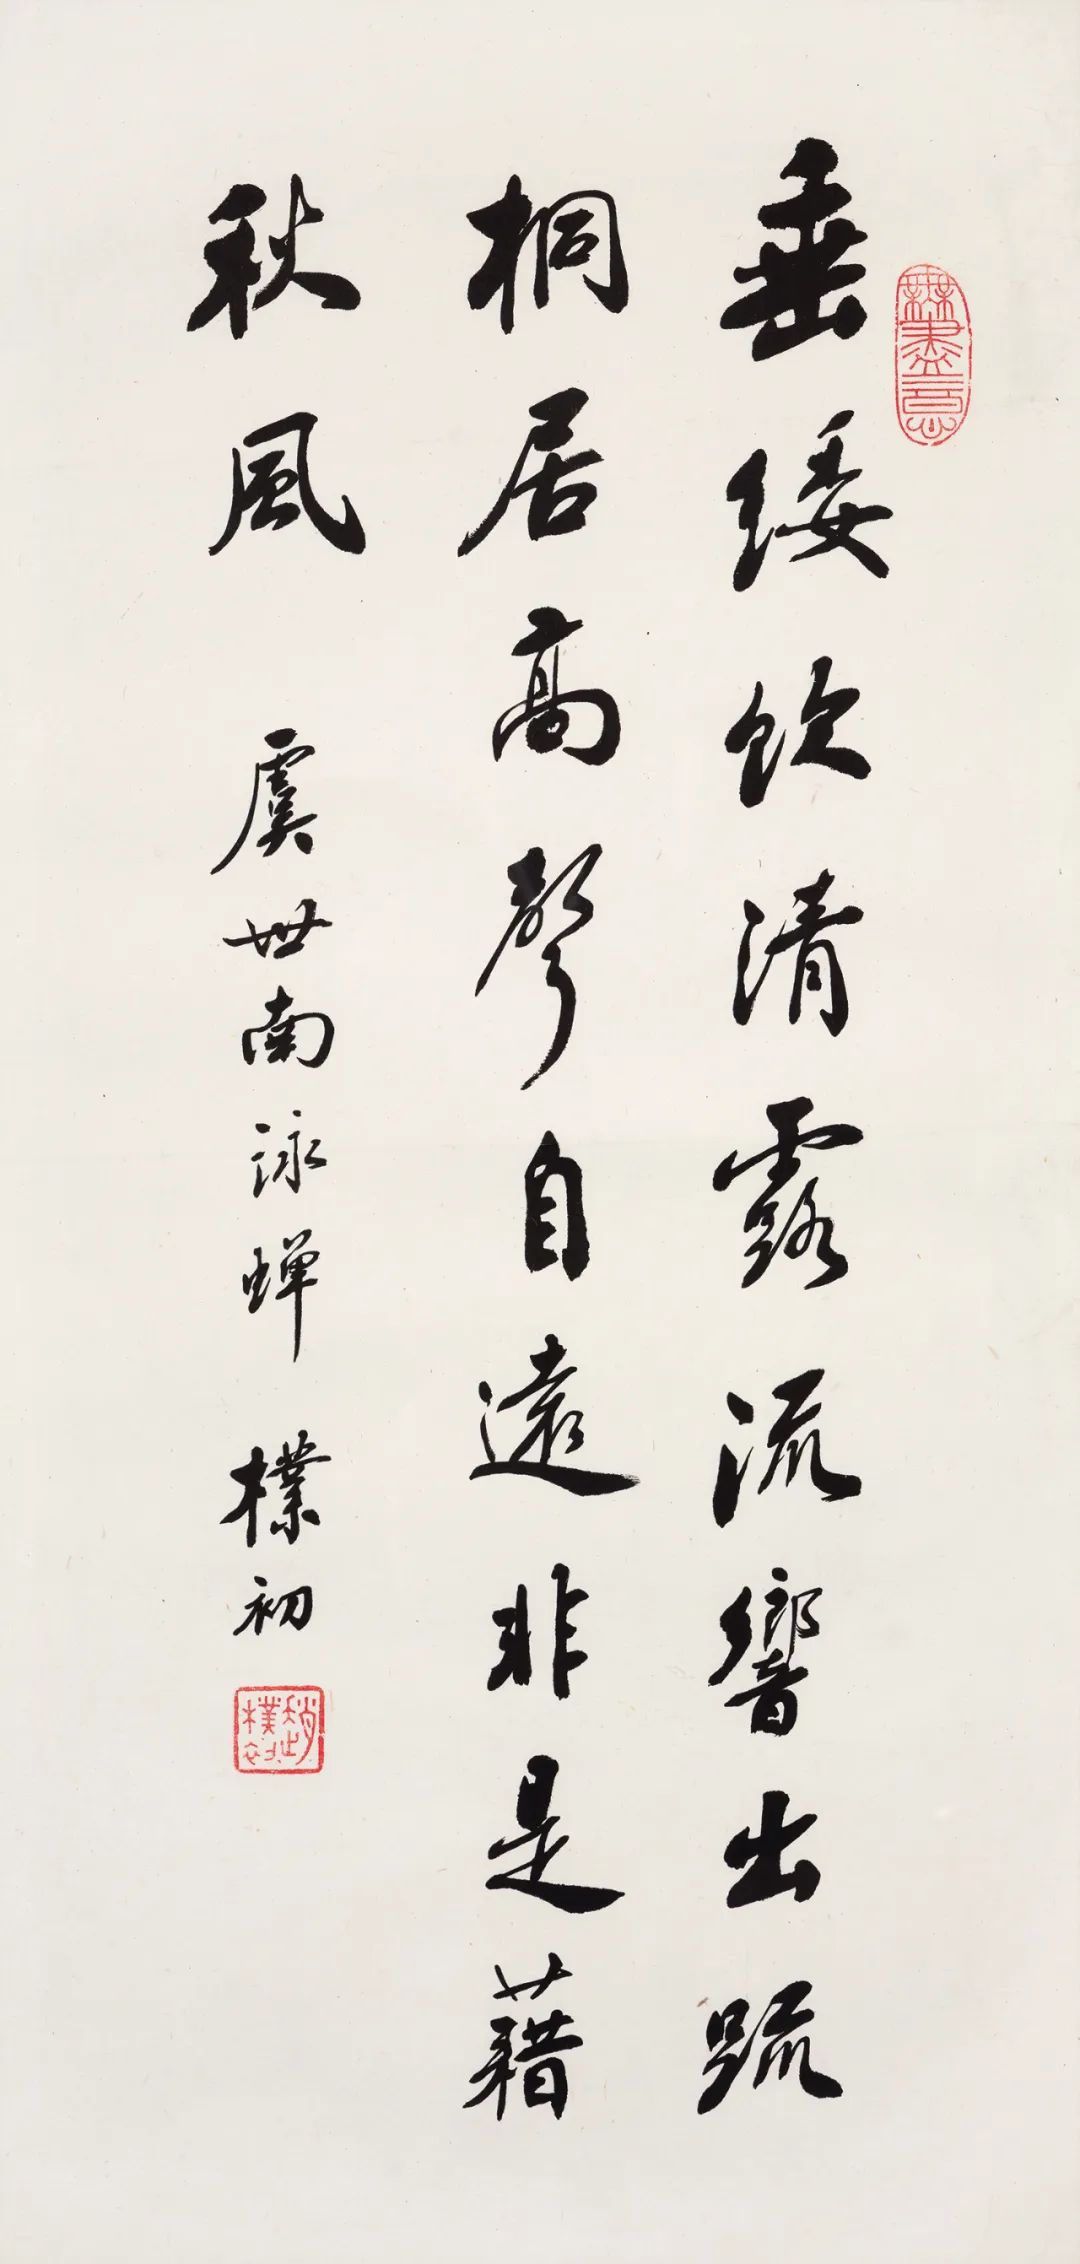 無盡意
垂緌飲清露流響出疏
桐居高聲自遠非是藉
秋風
虞世南詠蟬 樸初
趙樸初